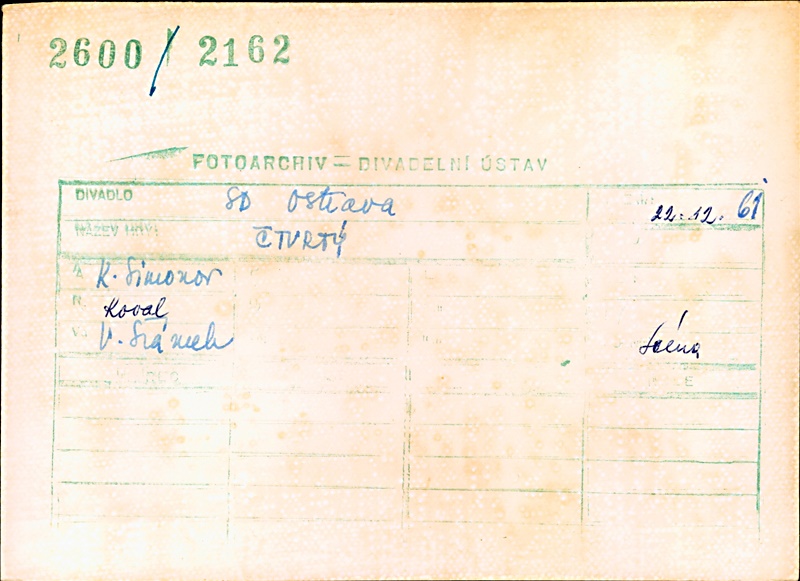 2600/2162
FOTOARCHIV = DIVADELNÍ ÚSTAV
DIVADLO SD Ostrava 22.12.61
NÁZEV HRY: ČTVRTÝ
A. K. Simonov
R. Koval
V. V. Šrámek Scéna